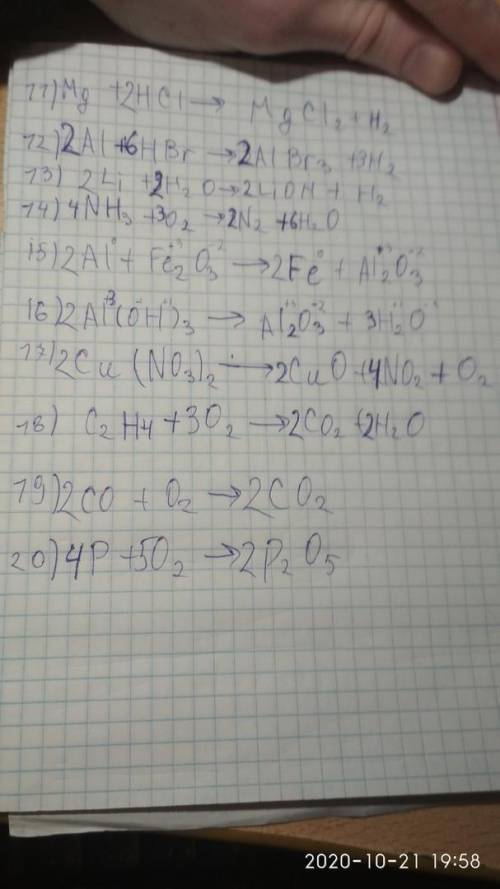 11) Mg + 2HCl → MgCl₂ + H₂
12) 2Al + 6HBr → 2AlBr₃ + 3H₂
13) 2Li + 2H₂O → 2LiOH + H₂
14) 4NH₃ + 3O₂ → 2N₂ + 6H₂O
15) 2Al⁰ + Fe₂⁺³O₃⁻² → 2Fe⁰ + Al₂⁺³O₃⁻²
16) 2Al⁺³(OH)₃ → Al₂⁺³O₃⁻² + 3H₂O
17) 2Cu(NO₃)₂ → 2CuO + 4NO₂ + O₂
18) C₂H₄ + 3O₂ → 2CO₂ + 2H₂O
19) 2CO + O₂ → 2CO₂
20) 4P + 5O₂ → 2P₂O₅
2020-10-21 19:58